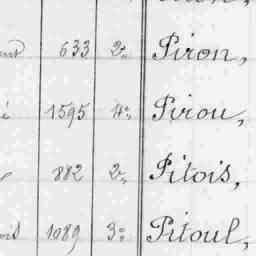 633 2º Piron,
1595 4º Pirou,
882 2º Pitois,
1089 3º Pitoul,